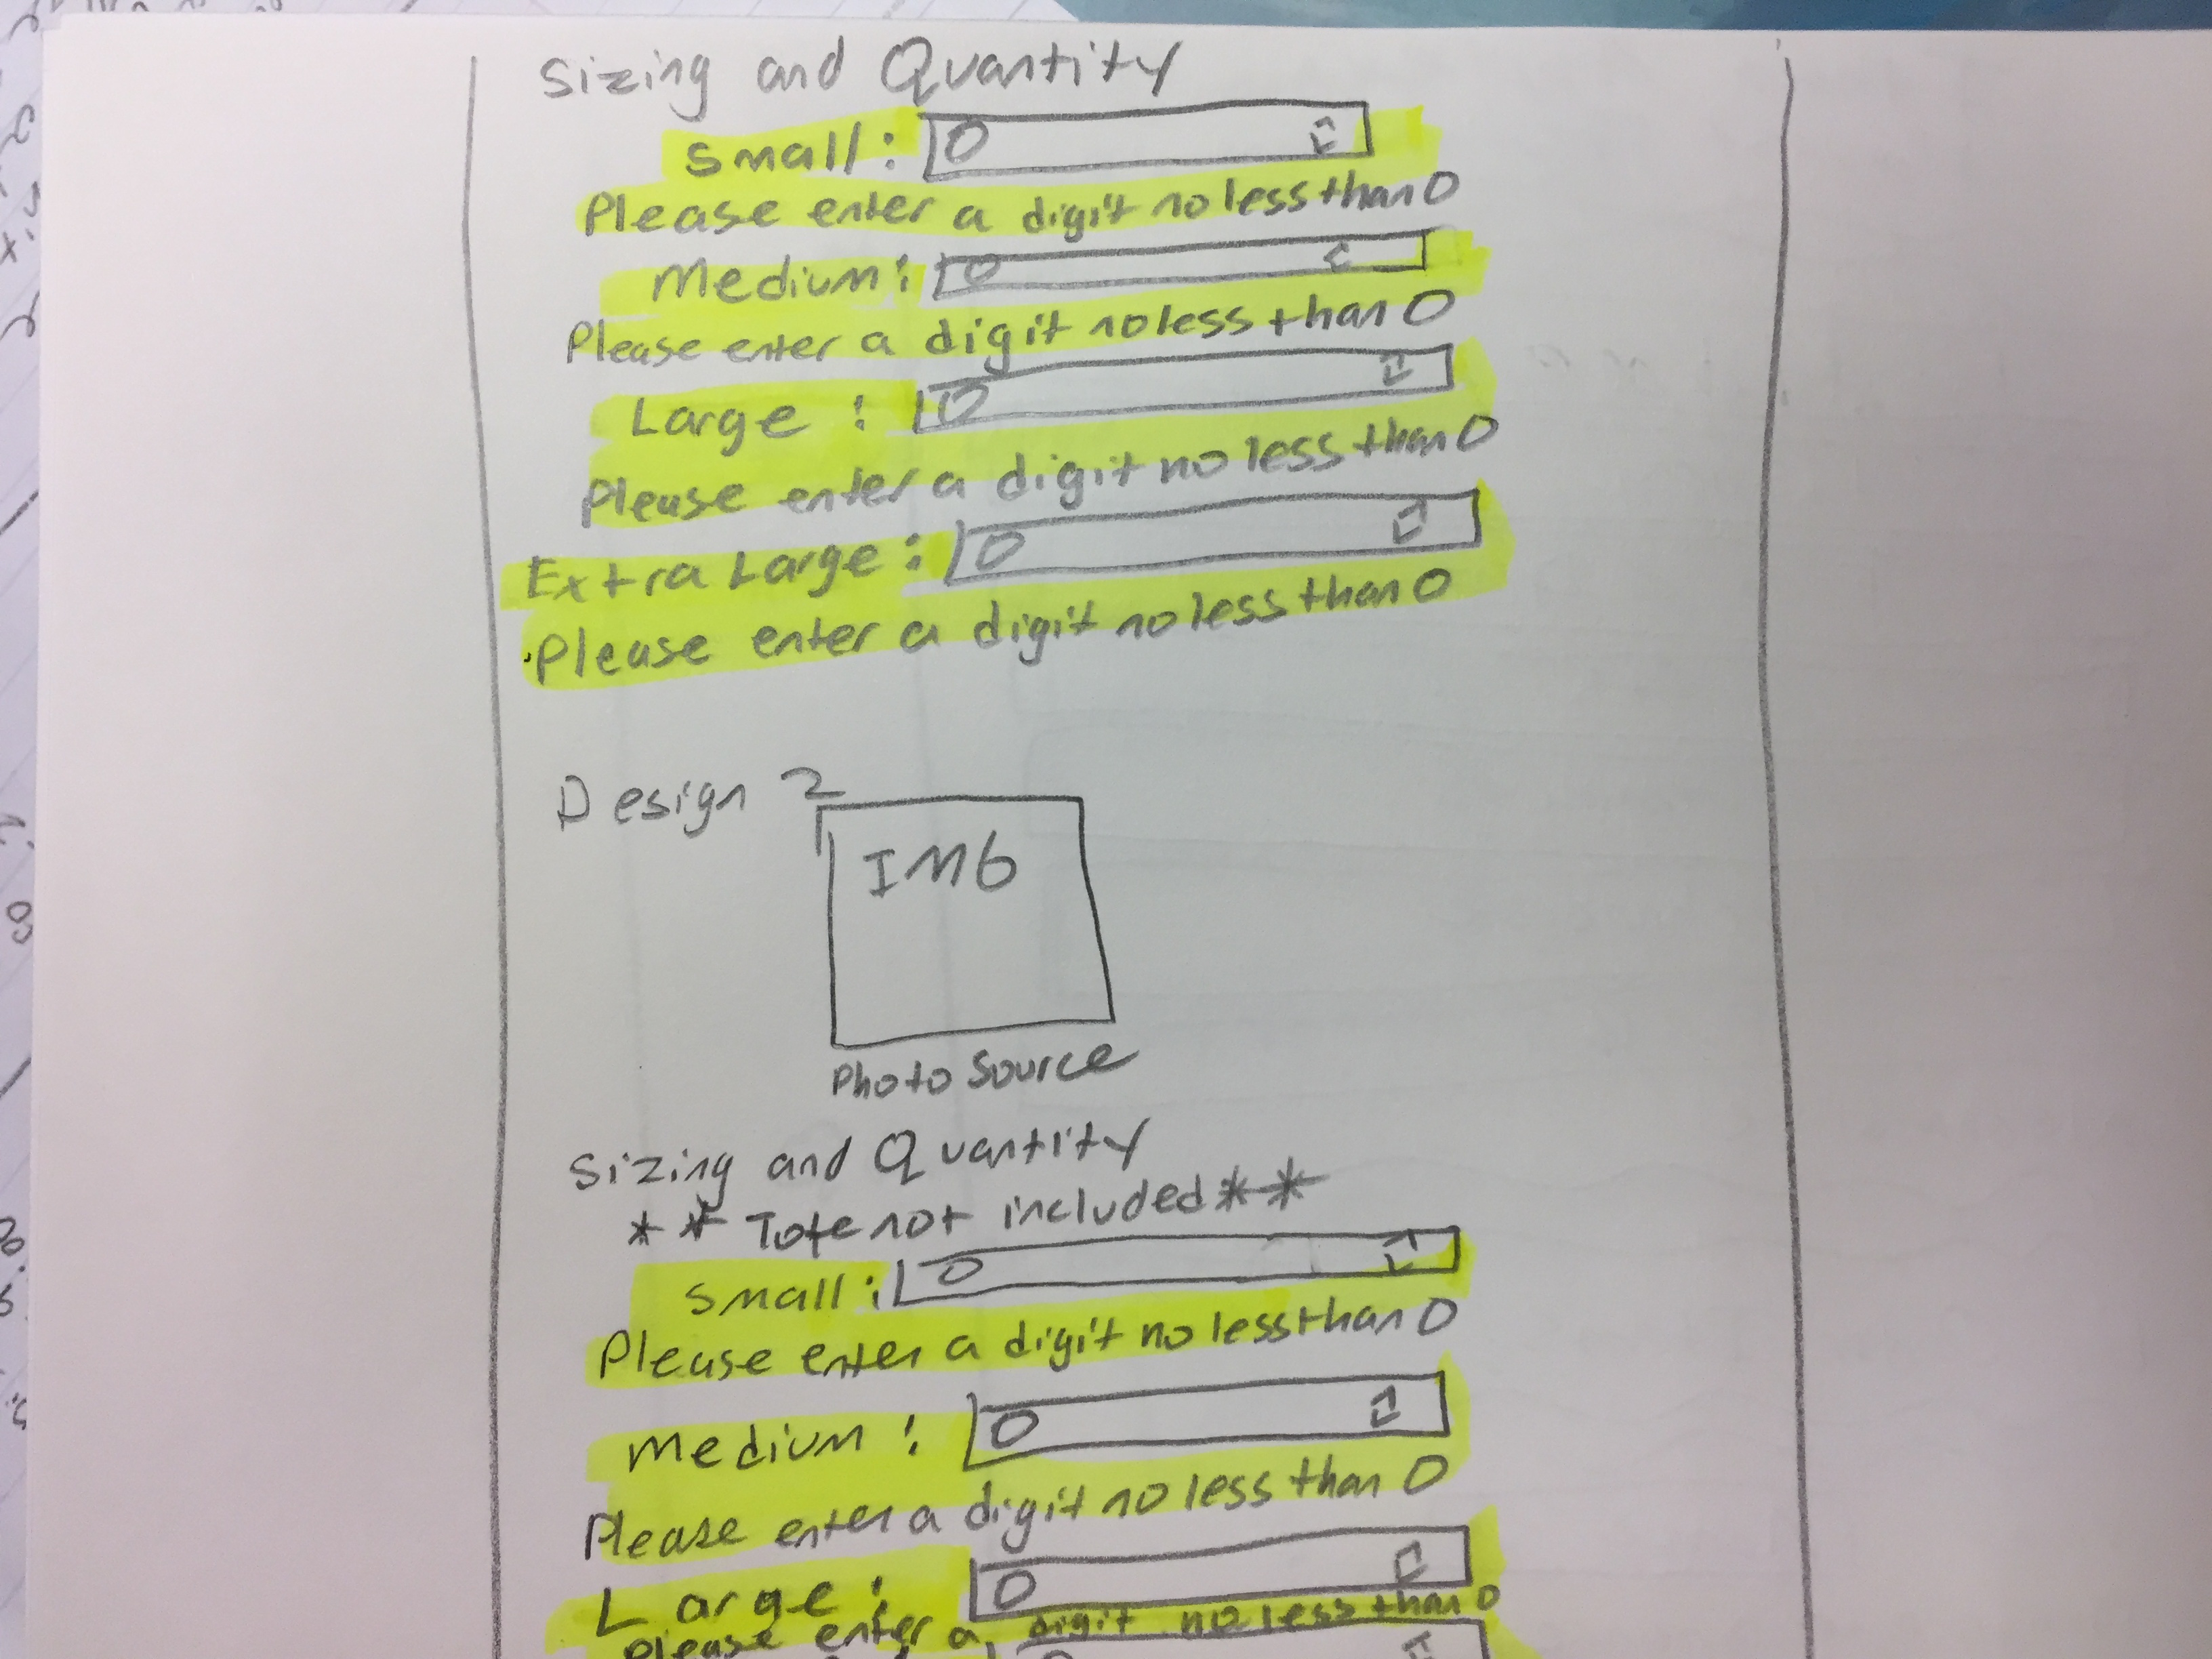 Sizing and Quantity
Small: 0
Please enter a digit no less than 0
Medium: 0
Please enter a digit no less than 0
Large: 0
Please enter a digit no less than 0
Extra Large: 0
Please enter a digit no less than 0
Design 2
IMG
Photo Source
Sizing and Quantity
** Tote not included **
Small: 0
Please enter a digit no less than 0
Medium: 0
Please enter a digit no less than 0
Large: 0
Please enter a digit no less than 0